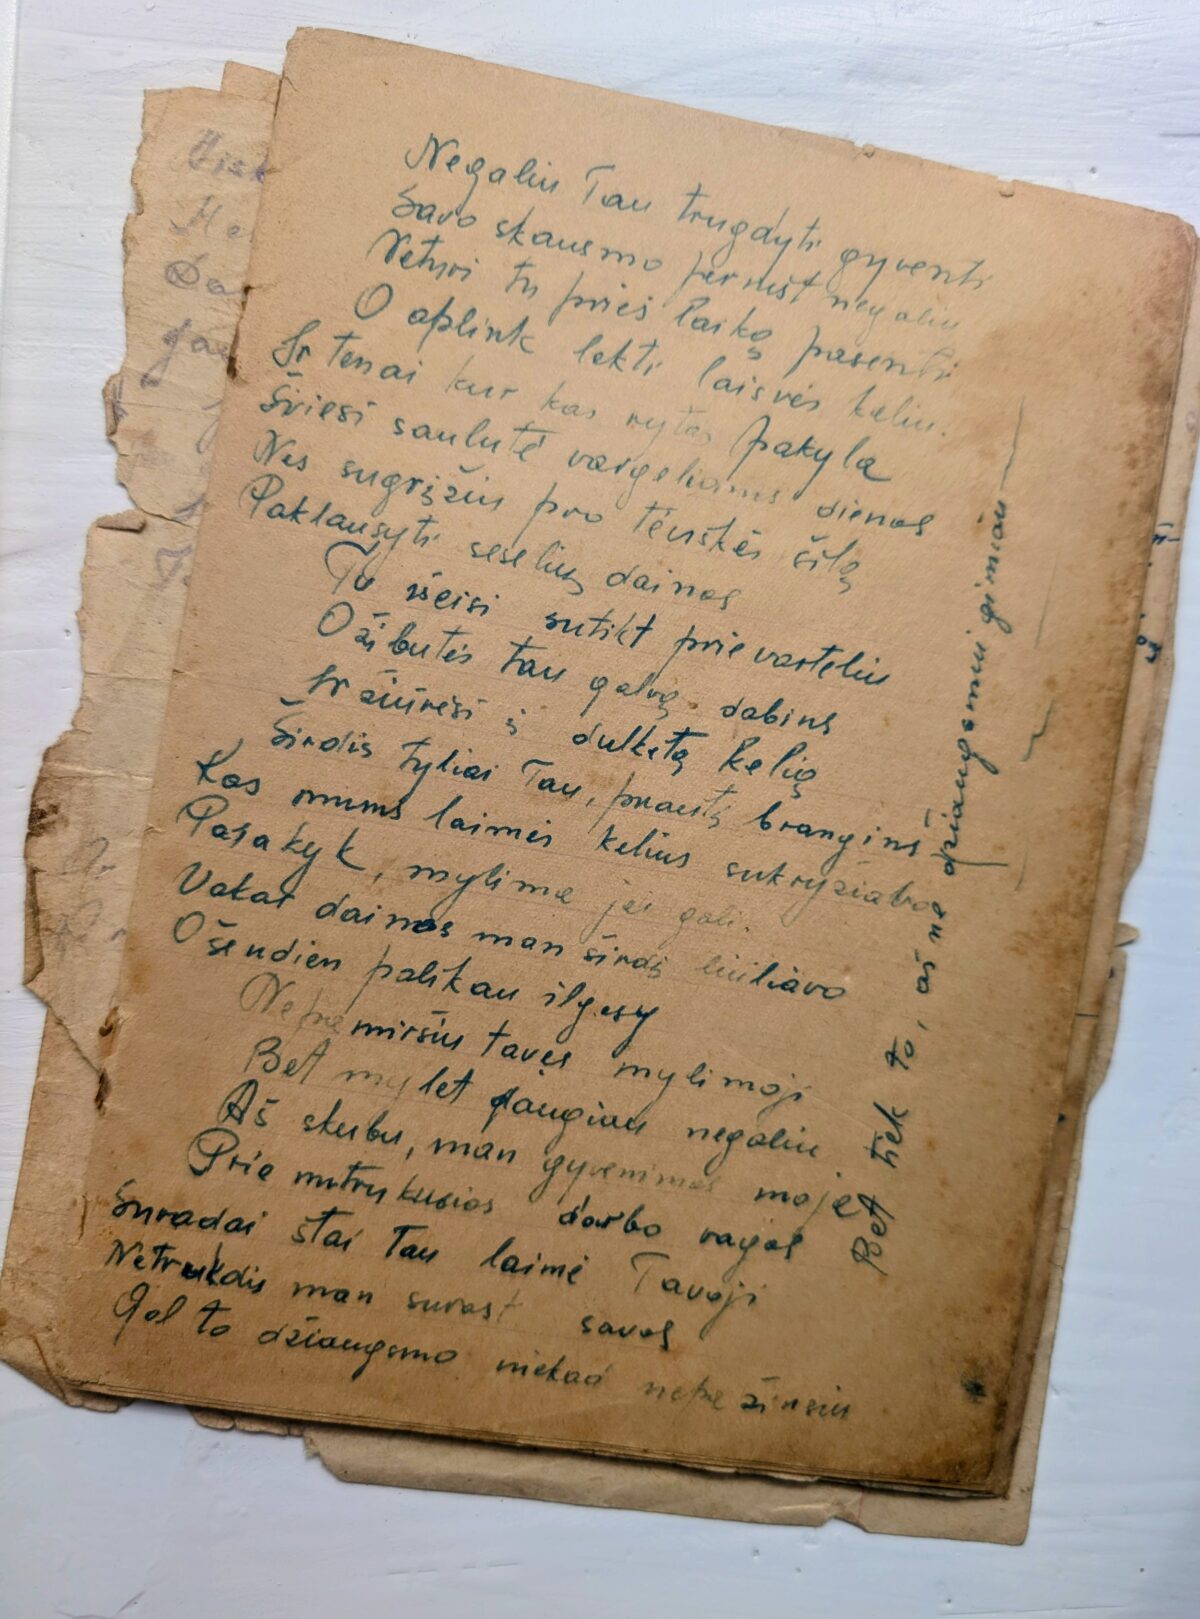 Negaliu Tau trugdyti gyventi
Savo skausmo permšt negaliu
Neturi tu prieš laiką pasenti
O aplink lekti laisvės keliu.
Ir tenai kur kas rytą pakyla
Šviesi saulutė vargeliams dienos
Nes sugrįžiu pro tėviškės šilą
Paklausyti seselių dainos
Tu išeisi sutikt prie vartelių
O žibutės tau galvą dabins
Ir žiūrėsi į dulkėtą kelią
Širdis tyliai Tau, praeitį brangins
Kas mums laimės kelius sukryžiavo
Pasakyk, mylima jei gali.
Vakar dainos man širdį liuliavo
O šiendien palikau ilgesy
Nepamiršiu tavęs mylimoji
Bet mylet daugiau negaliu
Aš skubu, man gyvenimas moja
Prie nutrukusios darbo vagos
Suradai štai Tau laimė Tavoji
Netrukdis man surast savos
Gal to džiaugsmo niekad nepažinsiu
Bet tiek to, aš ne džiaugsmui gimiau
Visk
Ne